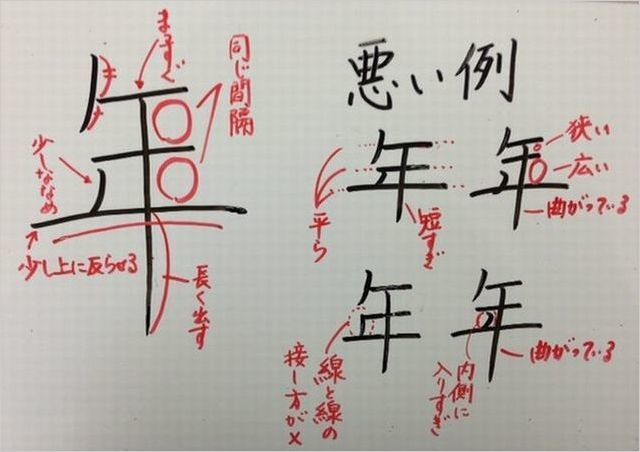 まっすぐ
同じ間隔
年
少しななめ
少し上に反らせる
長く出す
悪い例
年
平ら
短すぎ
年
狭い
広い
曲がっている
年
線と線の
接し方が×
年
内側に
入りすぎ
曲がっている